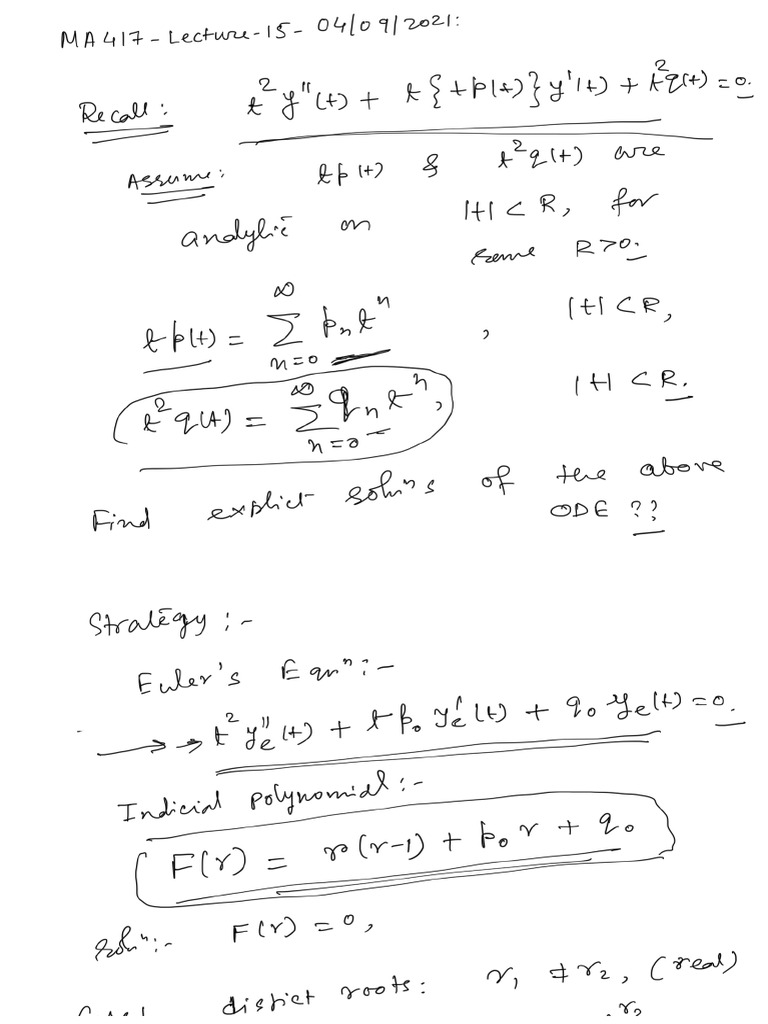 MA 417 - Lecture - 15 - 04/09/2021:
Recall: t²y''(t) + t{tp(t)}y'(t) + t²q(t) = 0.
Assume: tp(t) & t²q(t) are
analytic on |t| < R, for
some R>0.
tp(t) = ∑_{n=0}^{∞} p_n t^n , |t| < R,
t²q(t) = ∑_{n=0}^{∞} q_n t^n, |t| < R.
Find explict solns of the above
ODE ??
Strategy :-
Euler's Eqn^n :-
→ → t²y_e''(t) + t p_0 y_e'(t) + q_0 y_e(t) = 0.
Indicial polynomial :-
F(r) = r(r-1) + p_0 r + q_0
Sol^n :- F(r) = 0,
distict roots: r_1 ≠ r_2, (real)
r_2